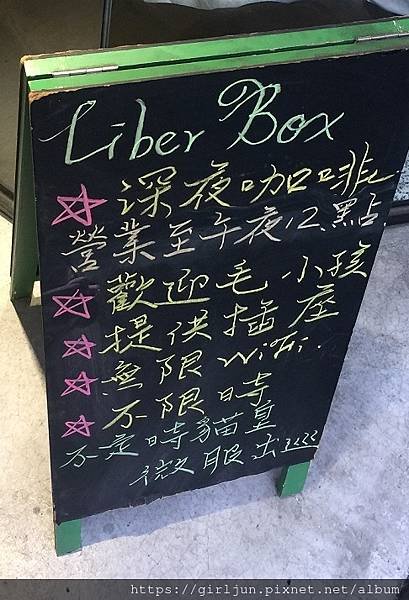 Liber Box
深夜咖啡
營業至午夜12點
歡迎毛小孩
提供插座
無限WiFi.
不限時
不定時貓皇
微服出巡
https://girljun.pixnet.net/album